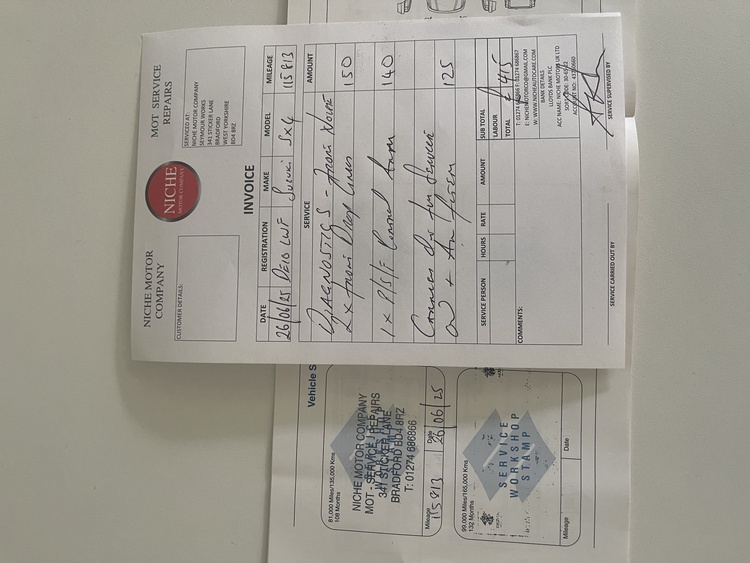 NICHE MOTOR
COMPANY
NICHE
MOTOR COMPANY
MOT SERVICE
REPAIRS
CUSTOMER DETAILS:
SERVICED AT:
NICHE MOTOR COMPANY
SEYMOUR WORKS
341 STICKER LANE
BRADFORD
WEST YORKSHIRE
BD4 8RZ
INVOICE
DATE REGISTRATION MAKE MODEL MILEAGE
26/06/25 DE10 LWF Suzuki SX4 115813
SERVICE AMOUNT
DIAGNOSTICS - Front Noise
2x Front Drop Links 150
1x P/S/F Control Arm 140
Carried out Service
Oil + Air Filter 125
SERVICE PERSON HOURS RATE AMOUNT SUB TOTAL
LABOUR
TOTAL £415
COMMENTS:
E: NICHEMOTORCO@GMAIL.COM
W: WWW.NICHEAUTOCARE.COM
BANK DETAILS
LLOYDS BANK PLC
ACC NAME: NICHE MOTORS UK LTD
SERVICE CARRIED OUT BY SERVICE SUPERVISED BY
Vehicle S
81,000 Miles/135,000 Kms
108 Months
NICHE MOTOR COMPANY
MOT - SERVICE - REPAIRS
341 STICKER LANE
BRADFORD BD4 8RZ
T: 01274 686866
Mileage 115813 Date 26/06/25
99,000 Miles/165,000 Kms
132 Months
SERVICE
WORKSHOP
STAMP
Mileage Date